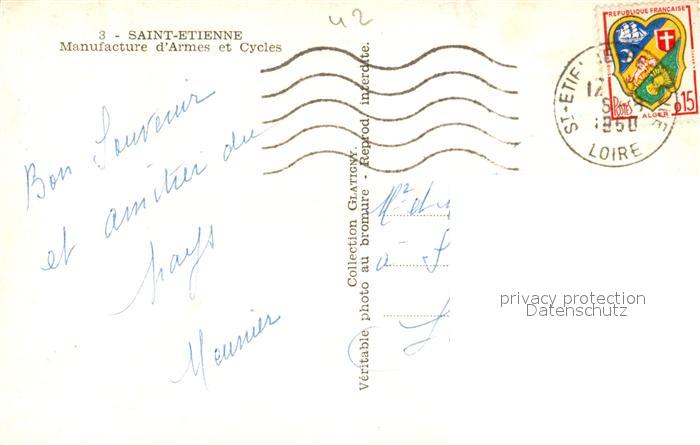 42
3 - SAINT-ETIENNE
Manufacture d'Armes et Cycles
Bon Souvenir
et amitiés du
pays
Meunier
Collection GLATIGNY.
Véritable photo au bromure - Reprod. interdite.
REPUBLIQUE FRANÇAISE
POSTES
0,15
ALGER
ST-ETIENNE
LOIRE
à
privacy protection
Datenschutz